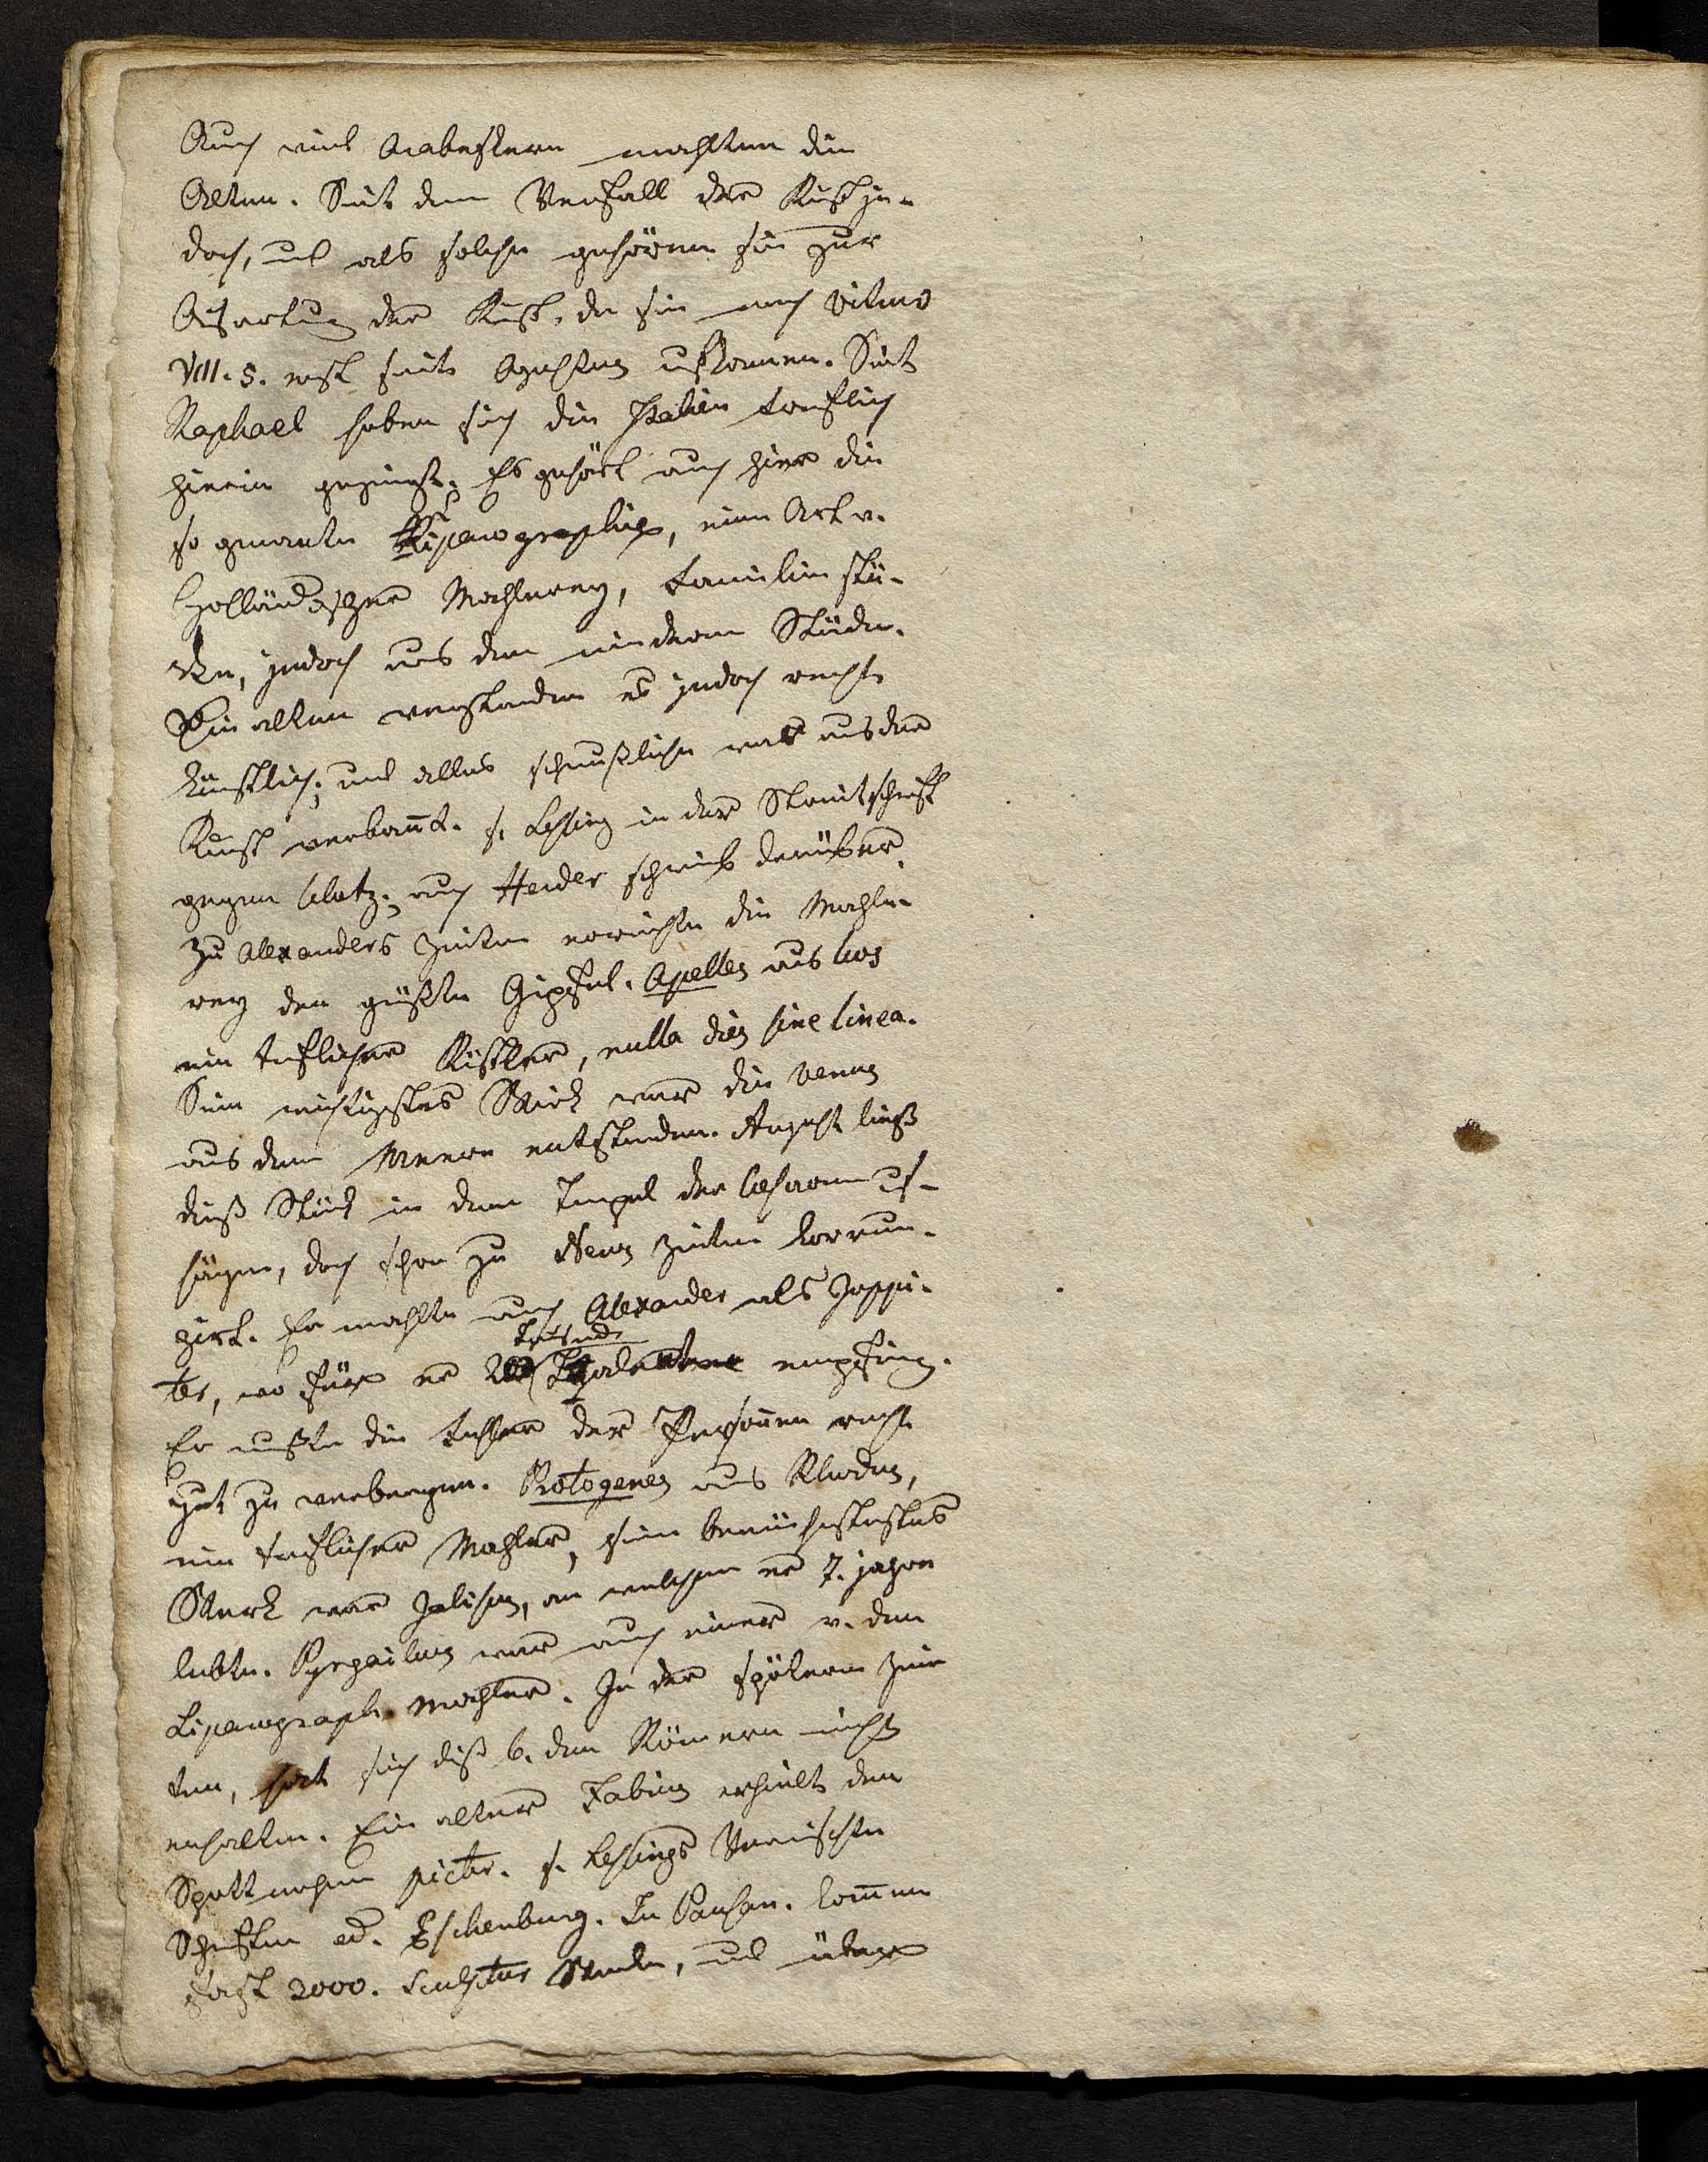 Auch viel Arabesken mahlten die
Alten. Seit dem Verfall der Kunst je-
doch, und als solche gehören sie zur
Ausartung der Kunst, da sie nach Vitruv
VII. 5. erst seit Augustus aufkamen. Seit
Raphael haben sich die Italien treflich
hierin gezeigt. Es gehört auch hier die
so genante Riparographie, eine Art v.
Holländischer Mahlerey, Familien stü-
cke, jedoch aus den niedern Ständen.
Die alten verstanden es jedoch recht
künstlich; und alles scheußliche war aus der
Kunst verbannt. s. Leßing in der Streitschrift
gegen Clotz; auch Herder schrieb darüber.
Zu Alexanders Zeiten erreichte die Mahle-
rey den größten Gipfel. Apelles aus Cos
ein treflicher Künstler, nulla dies sine linea.
Sein wichtigstes Stück war die Venus
aus dem Meere entstanden. August ließ
dieß Stück in dem Tempel der Cäsaren auf-
hängen, doch schon zu Neros Zeiten korrum-
pirt. Er mahlte auch Alexander als Juppi-
ter, wofür er Tausend empfing.
Er wußte die Fehler der Personen recht
gut zu verbergen. Protogenes aus Rhodus,
ein treflicher Mahler, sein berühmtestes
Werk war Jalisus, an welchem er 7. jahre
lebte. Pyreicus war auch einer v. den
Riparograph. Mahler. In der spätern Zei-
ten, hat sich diß b. den Römern nicht
erhalten. Ein alter Fabius erhielt den
Spottnahmen pictor. s. Leßings Vermischte
Schriften ed. Eschenburg. In Pausan. kommen
fast 2000. Sculptur Werke, und über